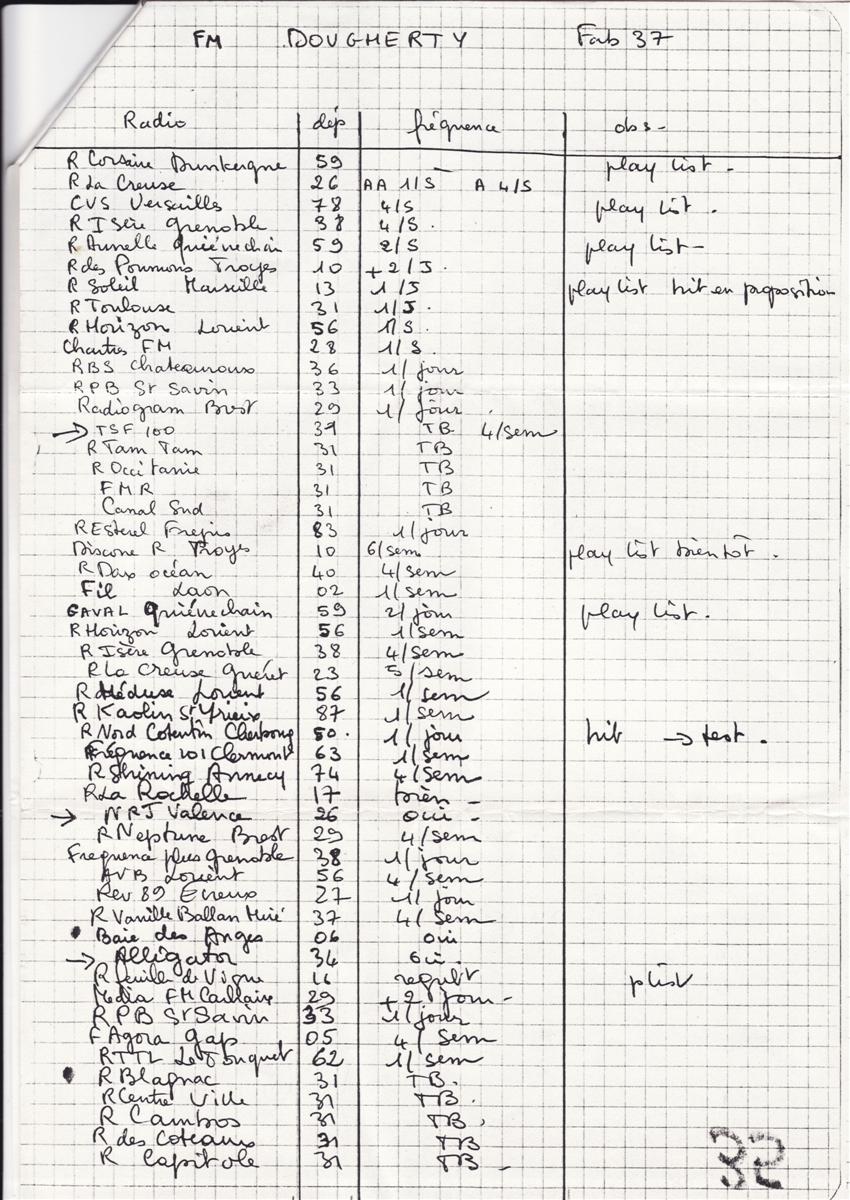 FM DOUGHERTY Fab 37
Radio dép fréquence obs-
R Corsaire Dunkerque 59 play list -
R La Creuse 26 AA 1/S A 4/S
CVS Versailles 78 4/S play list .
R Isère Grenoble 38 4/S.
R Aunelle Quiévrechain 59 2/S play list -
R des Poumons Troyes 10 +2/J.
R Soleil Marseille 13 1/J play list hit en proposition
R Toulouse 31 1/J.
R Horizon Lorient 56 1/S.
Chartres FM 28 1/S.
RBS Chateauroux 36 1/jour
RPB St Savin 33 1/jour
Radiogram Brest 29 1/jour
→ TSF 100 39 TB 4/sem
R Tam Tam 31 TB
R Occitanie 31 TB
FMR 31 TB
Canal Sud 31 TB
R Esterel Frejus 83 1/jour
Discone R Troyes 10 6/sem play list bientôt .
R Dax océan 40 4/sem
Fil Laon 02 1/sem
GAVAL Quiévrechain 59 2/jour play list .
R Horizon Lorient 56 1/sem
R Isère Grenoble 38 4/sem
R La Creuse Guéret 23 5/sem
R Méduse Lorient 56 1/sem
R Kaolin St Yrieix 87 1/sem
R Nord Cotentin Cherbourg 50. 1/jour hit → test .
Fréquence 101 Clermont 63 1/sem
R Shining Annecy 74 4/sem
R La Rochelle 17 bien -
→ NRJ Valence 26 oui -
R Neptune Brest 29 4/sem
Frequence plus Grenoble 38 1/jour
AVB Lorient 56 4/sem
Rev 89 Evreux 27 1/jour
R Vanille Ballan Miré 37 4/sem
• Baie des Anges 06 oui
→ Alligator 34 oui.
R feuille de Vigne 16 regult plist
Media FM 29 +2 jour-
R PB St Savin 33 1/jour
F Agora Gap 05 4/sem
RTTL Le Touquet 62 1/sem
• R Blagnac 31 TB.
R Centre Ville 31 TB.
R Cambos 31 TB.
R des Coteaux 31 TB
R Capitole 31 TB -
32